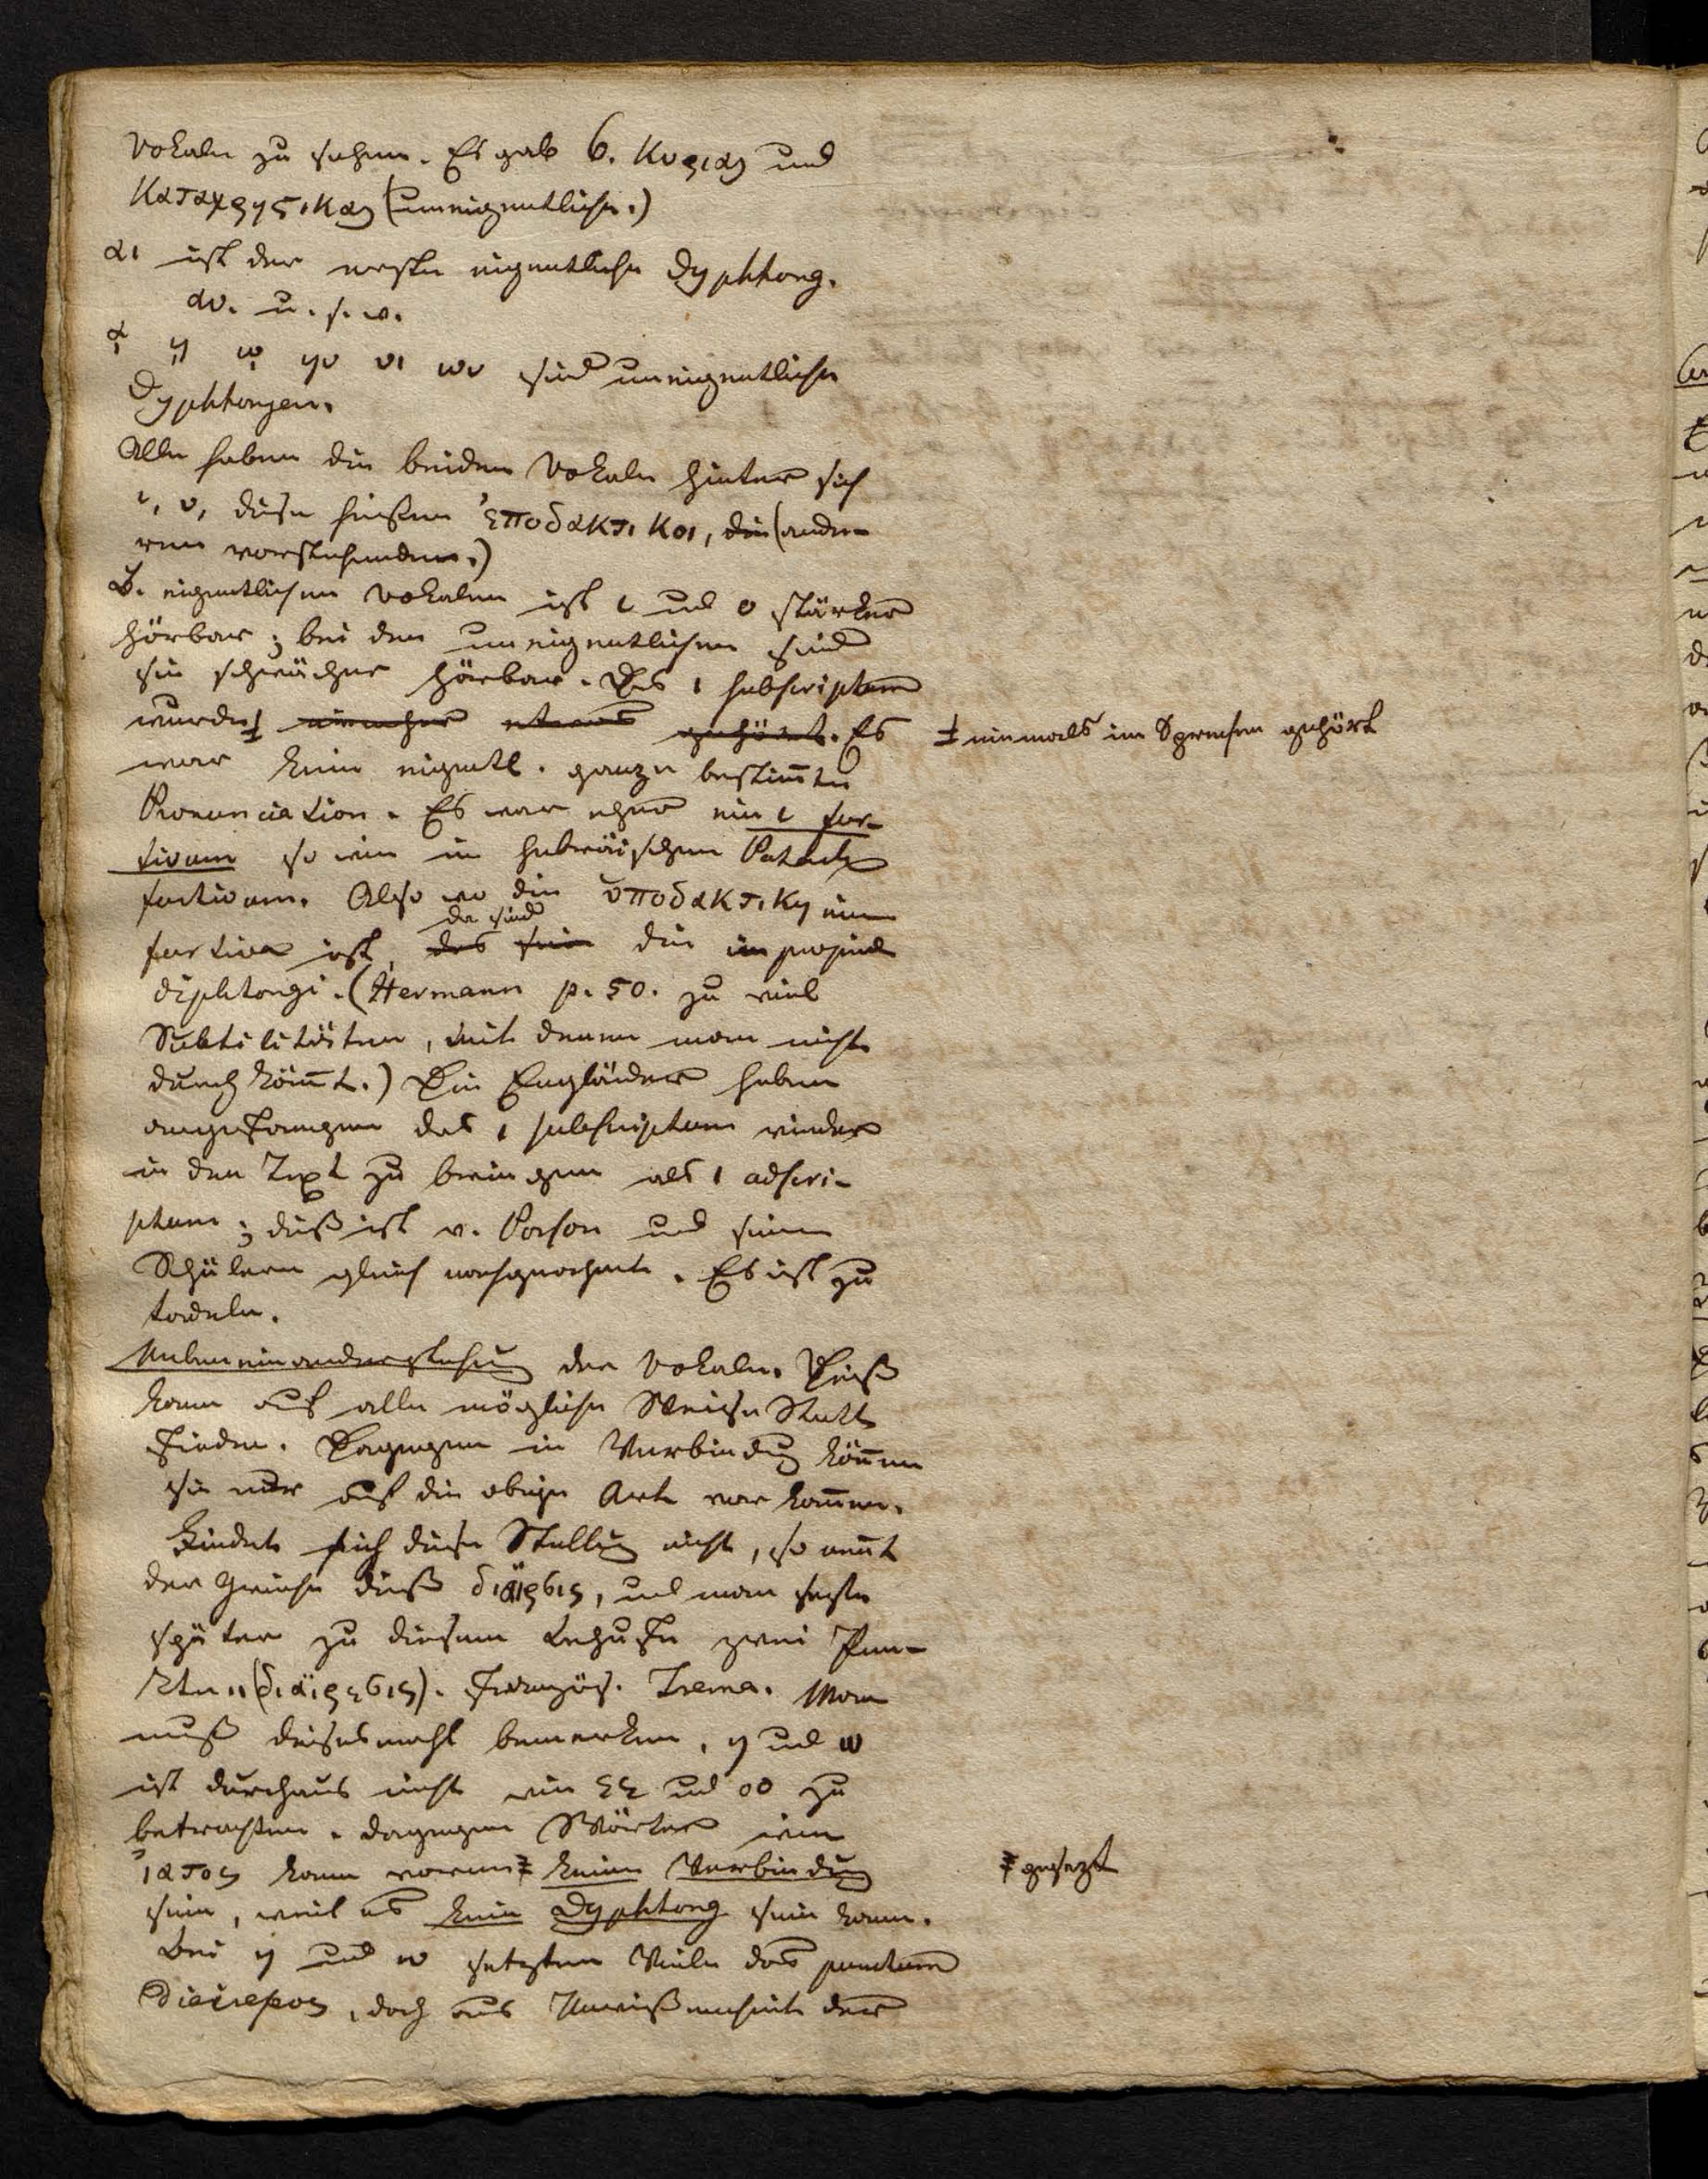 Vokale zu sehen. Es gab 6. κυριαι und
καταχρηστικαι (uneigentliche.)
αι ist der erste eigentliche Dyphtong.
αυ. u. s. w.
ᾳ ῃ ῳ ηυ υι ωυ sind uneigentliche
Dyphtongen.
Alle haben die beiden Vokale hinter sich
ι, υ, diese hießen ὑποδακτικοι, die (ande-
ren vorstehenden.)
B. eigentlichen Vokalen ist ι und υ stärker
hörbar; bei den uneigentlichen sind
sie schwächer hörbar. Das ι subscriptum
wurde niemals im Sprechen gehört. Es
war keine eigentl. ganze bestim̅te
Pronunciation. Es war eher ein ι fur-
tivum so wie im hebräischen Patach
furtivum. Also wo die ὑποδακτικη eine
furtiva ist, da sind die impropriae
diphtongi. (Hermann p. 50. zu viel
Subtilitäten, mit denen man nicht
durchköm̅t.) Die Engländer haben
angefangen das ι subscriptum wieder
in den Text zu bringen als ι adscri-
ptum; dieß ist v. Porson und seinen
Schülern gleich nachgeahmt. Es ist zu
tadeln.
Nebeneinanderstehung der Vokale. Dieß
kann auf alle mögliche Weise Statt
finden. Dagegen in Verbindung kön̅en
sie nur auf die obige Art vorkom̅en.
Findet sich diese Stellung nicht, so nen̅t
der Grieche dieß διαιρσις, und man setzte
später zu diesem Behufe zwei Pun-
kte ¨ (διαιρεσις). Französ. Trema. Man
muß diesesmahl bemerken, η und ω
ist durchaus nicht wie εε und οο zu
betrachten. dagegen Wörter wie
ἰατος kann vorerst keine Verbindung
sein, weil es kein Dyphtong sein kann.
Bei η und ω setzten Viele das punctum
diaireseos, doch aus Unwissenheit der
‡ niemals im Sprechen gehört
‡ gesezt